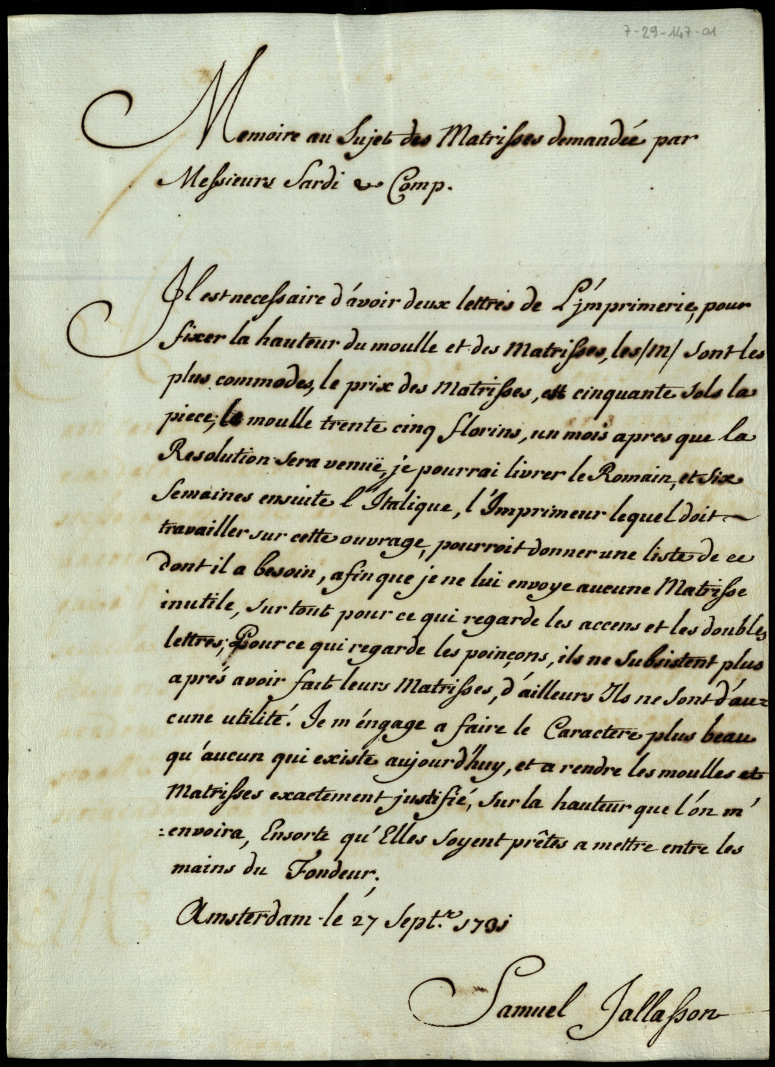 7-29-147-01
Memoire au Sujet des Matrisses demandée par
Messieurs Sardi & Comp.
Il est necessaire d'àvoir deux lettres de L'jmprimerie, pour
fixer la hauteur du moulle et des Matrisses, les /m/ sont les
plus commodes, le prix des Matrisses, est cinquante Sols la
piece, le moulle trente cinq florins, un mois apres que la
Resolution sera venuë, je pourrai livrer le Romain, et six
Semaines ensuite l'Italique, l'Imprimeur lequel doit
travailler sur cette ouvrage, pourroit donner une liste de ce
dont il a besoin, afin que je ne lui envoye aucune Matrisse
inutile, sur tout pour ce qui regarde les accens et les doubles
lettres; Pour ce qui regarde les poinçons, ils ne subsistent plus
aprés avoir fait leurs Matrisses, d'ailleurs Ils ne sont d'au=
cune utilité. Je m'éngage a faire le Caractere plus beau
qu'aucun qui existe aujourd'huy, et a rendre les moulles et
Matrisses exactement justifié, sur la hauteur que l'ón m'
=envoira, Ensorte qu'Elles soyent prêtes a mettre entre les
mains du Fondeur.
Amsterdam le 27 Sept.re 1731
Samuel Jallasson